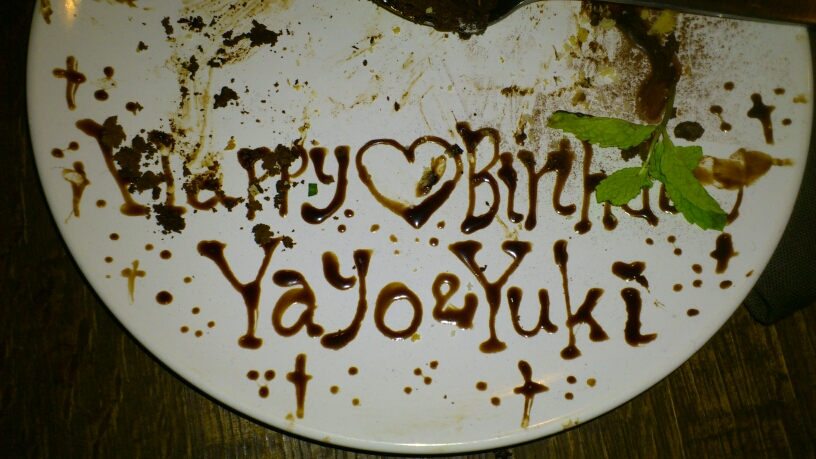 Happy♡Birthday
Yayo&Yuki